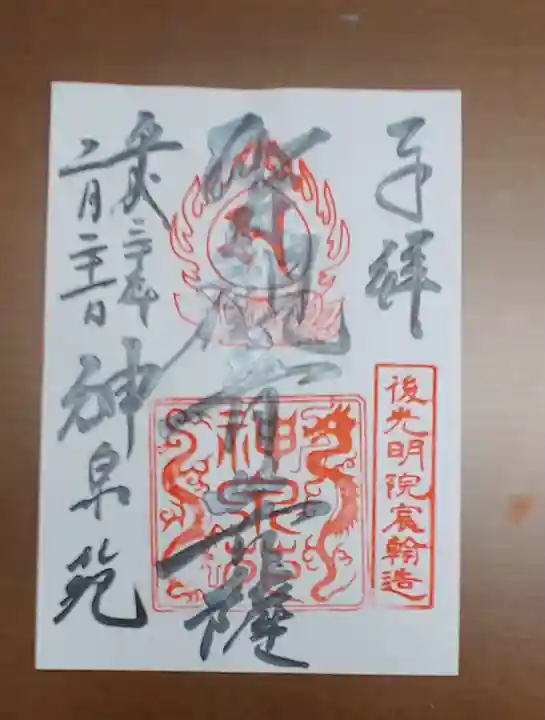 奉拝
後光明院宸翰造
聖観音菩薩
神泉苑
平成三十年
二月二十一日
神泉苑